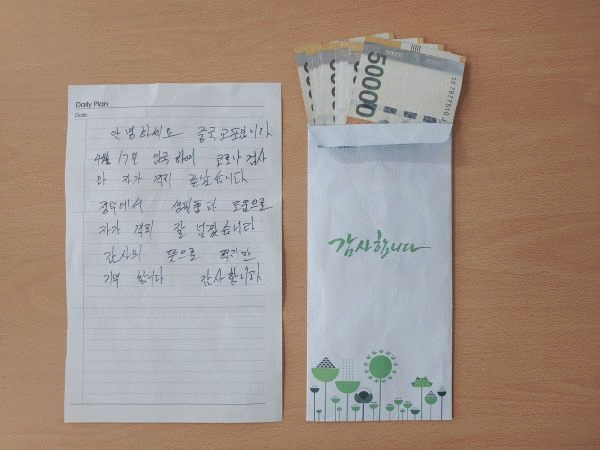 Daily Plan
Date
안녕하세요 중국교포입니다
4월 17일 입국하여 코로나 검사
와 자가 격리 끝났습니다
정부에서 생필품과 도움으로
자가 격리 잘 넘겼습니다
감사의 뜻으로 적지만
기부 합니다 감사합니다
50000
감사합니다